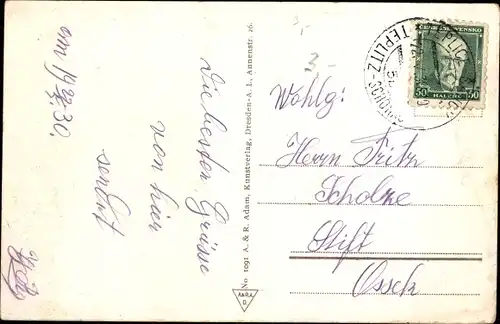 am 19.
30.
Die besten Grüsse
von hier
sendet
No 1091 A. & R. Adam, Kunstverlag, Dresden-A. I., Annenstr. 26.
ADRA
D
3,-
3-
TEPLITZ-SCHÖNAU
ČESKOSLOVENSKO
50 HALÉŘŮ 50
Wohlg:
Herrn Fritz
Scholze
Stift
Ossek